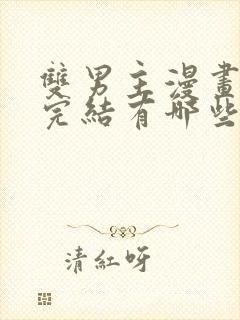 雙男主漫畫
完結有哪些
清紅呀